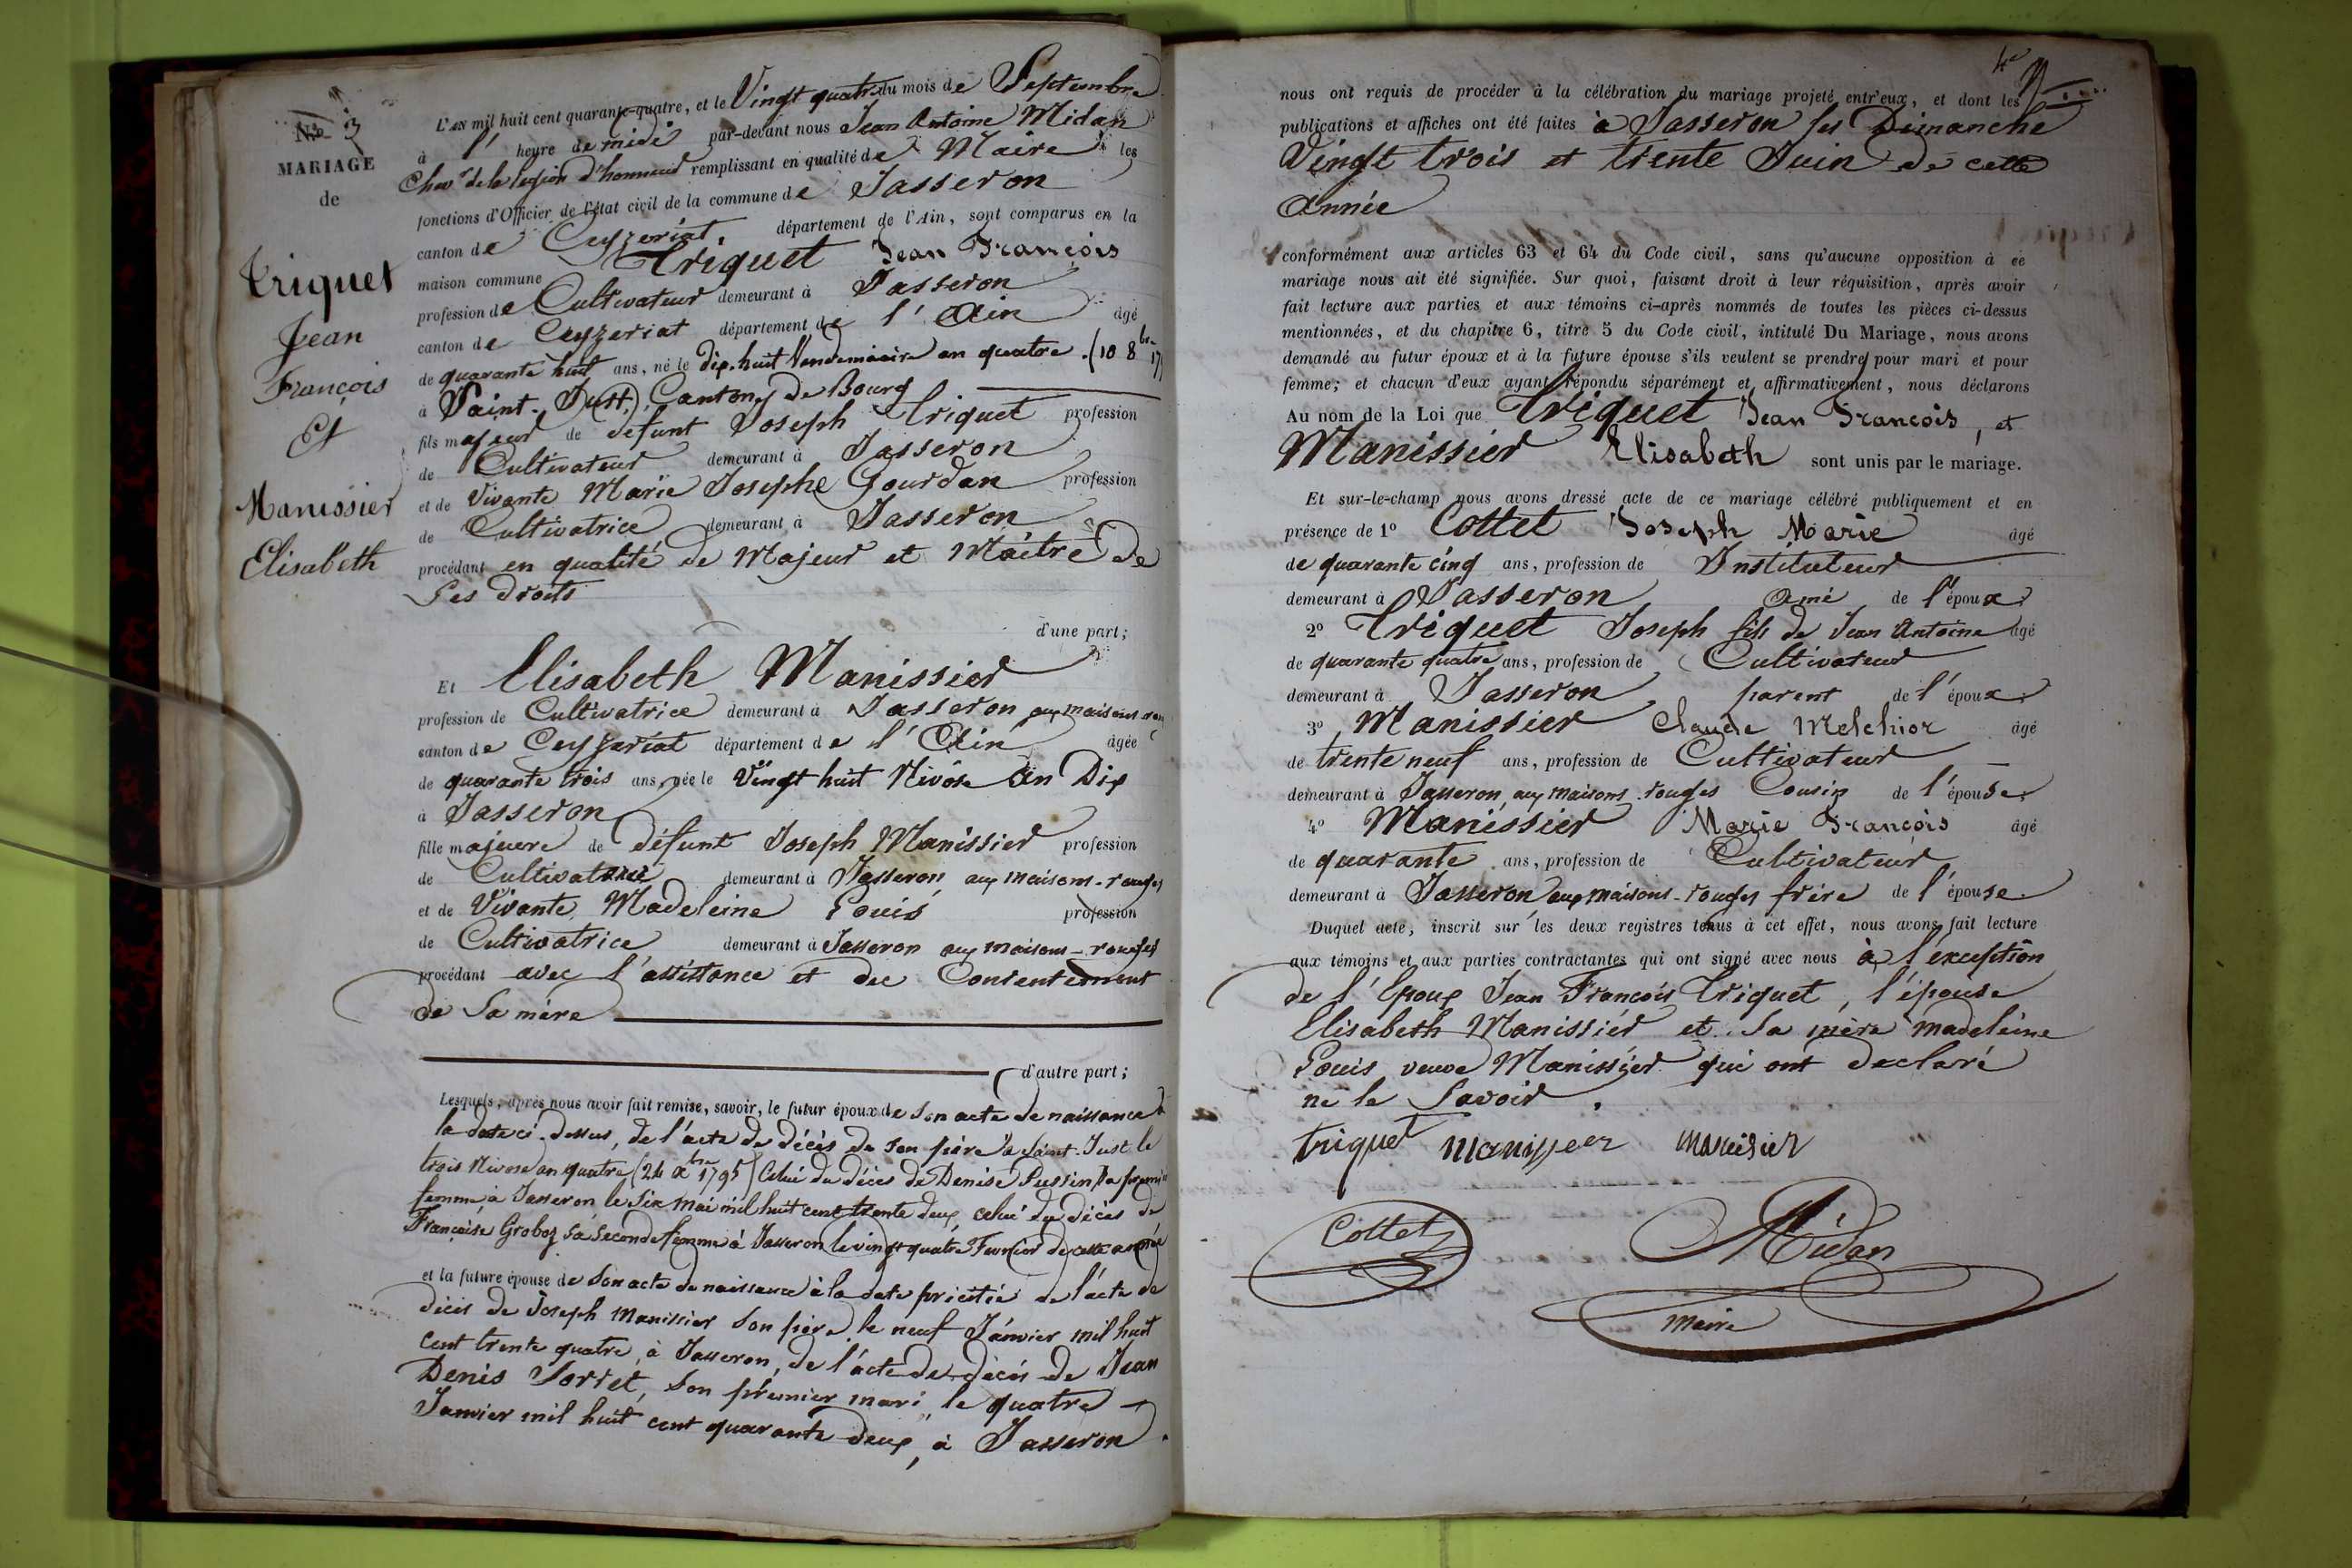 N° 3
MARIAGE
de
Triquet
Jean
François
Et
Manissier
Elisabeth
L'an mil huit cent quarante-quatre, et le Vingt quatre du mois de Septembre
à l' heure de midi par-devant nous Jean Antoine Midan
Chevr de la légion d'honneur remplissant en qualité de Maire les
fonctions d'Officier de l'état civil de la commune de Jasseron
canton de Ceyzeriat, département de l'Ain, sont comparus en la
maison commune Triquet Jean François
profession de Cultivateur demeurant à Jasseron
canton de Ceyzeriat département de l'Ain âgé
de quarante huit ans, né le dix-huit Vendemiaire an quatre (10 8bre 17
à Saint-Just, Canton de Bourg
fils majeur de défunt Joseph Triquet profession
de Cultivateur demeurant à Jasseron
et de Vivante Marie Josephe Gourdan profession
de Cultivatrice demeurant à Jasseron
procédant en qualité de Majeur et Maître de
Ses droits
d'une part;
Et Elisabeth Manissier
profession de Cultivatrice demeurant à Jasseron aux maisons
canton de Ceyzeriat département de l'Ain âgée
de quarante trois ans, née le Vingt huit Nivôse An Dix
à Jasseron
fille majeure de défunt Joseph Manissier profession
de demeurant à Jasseron aux maisons-rouges
et de Vivante Madeleine Pouis profession
de Cultivatrice demeurant à Jasseron aux maisons-rouges
procédant avec l'assistance et du Consentement
de Sa mère
d'autre part;
Lesquels, après nous avoir fait remise, savoir, le futur époux de Son acte de naissance à
la date ci-dessus, de l'acte de décès de son père à Saint-Just le
trois Nivose an quatre (24 xbre 1795) Celui du décès de Denise Pussin, Sa premie
femme à Jasseron, le Six Mai mil huit cent trente deux, celui du décès de
Françoise Groboz Sa Seconde femme à Jasseron le vingt quatre Fevrier de cette année
et la future épouse de Son acte de naissance à la date précitée de l'acte de
décès de Joseph Manissier Son père, le neuf Janvier mil huit
cent trente quatre, à Jasseron, de l'acte de décès de Jean
Denis Sorret, Son premier mari, le quatre
Janvier mil huit cent quarante deux, à Jasseron.
nous ont requis de procéder à la célébration du mariage projeté entr'eux, et dont les
publications et affiches ont été faites à Jasseron les Dimanche
Vingt trois et trente Juin de cette
Année
conformément aux articles 63 et 64 du Code civil, sans qu'aucune opposition à ce
mariage nous ait été signifiée. Sur quoi, faisant droit à leur réquisition, après avoir
fait lecture aux parties et aux témoins ci-après nommés de toutes les pièces ci-dessus
mentionnées, et du chapitre 6, titre 5 du Code civil, intitulé Du Mariage, nous avons
demandé au futur époux et à la future épouse s'ils veulent se prendre pour mari et pour
femme; et chacun d'eux ayant répondu séparément et affirmativement, nous déclarons
Au nom de la Loi que Triquet Jean François, et
Manissier Elisabeth sont unis par le mariage.
Et sur-le-champ nous avons dressé acte de ce mariage célébré publiquement et en
présence de 1° Cottet Joseph Marie âgé
de quarante cinq ans, profession de Instituteur
demeurant à Jasseron Amé de l'époux
2° Triquet Joseph fils de Jean Antoine âgé
de quarante quatre ans, profession de Cultivateur
demeurant à Jasseron parent de l'époux
3° Manissier Claude Melchior âgé
de trente neuf ans, profession de Cultivateur
demeurant à Jasseron, aux maisons-rouges Cousin de l'épouse
4° Manissier Marie François âgé
de quarante ans, profession de Cultivateur
demeurant à Jasseron aux maisons-rouges frère de l'épouse
Duquel acte, inscrit sur les deux registres tenus à cet effet, nous avons fait lecture
aux témoins et aux parties contractantes qui ont signé avec nous à l'exception
de l'Epoux Jean François Triquet, l'épouse
Elisabeth Manissier et Sa mère Madeleine
Pouis veuve Manissier qui ont declaré
ne le Savoir.
triquet manissier manisier
Cottet
Midan
Maire